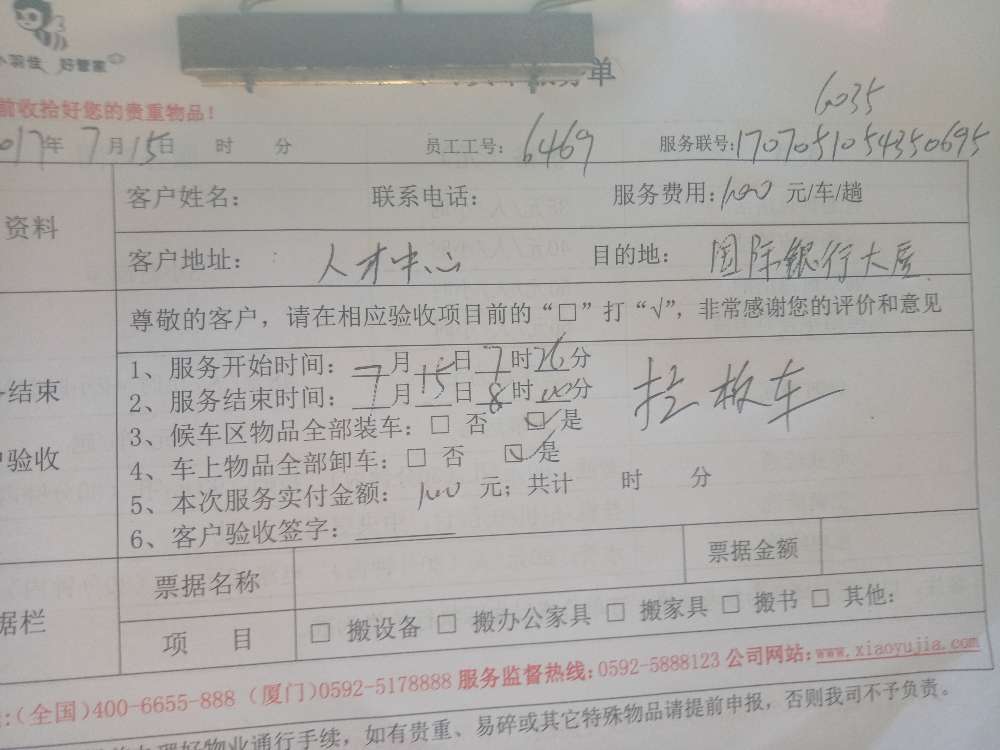 小羽佳 好管家
单
前收拾好您的贵重物品！
6035
2017年 7月15日 时 分 员工工号：6469 服务联号：1707051054350695
资料 客户姓名： 联系电话： 服务费用：100 元/车/趟
客户地址： 人才中心 目的地： 国际银行大厦
尊敬的客户，请在相应验收项目前的“□”打“√”，非常感谢您的评价和意见
结束
验收
1、服务开始时间：7月15日7时26分
2、服务结束时间：7月15日8时00分
拉板车
3、候车区物品全部装车：□ 否 ☑是
4、车上物品全部卸车：□ 否 ☑是
5、本次服务实付金额：100 元；共计 时 分
6、客户验收签字：
据栏 票据名称 票据金额
项 目 □ 搬设备 □ 搬办公家具 □ 搬家具 □ 搬书 □ 其他：
:(全国)400-6655-888 (厦门)0592-5178888 服务监督热线:0592-5888123 公司网站:www.xiaoyujia.com
理好物业通行手续，如有贵重、易碎或其它特殊物品请提前申报，否则我司不予负责。